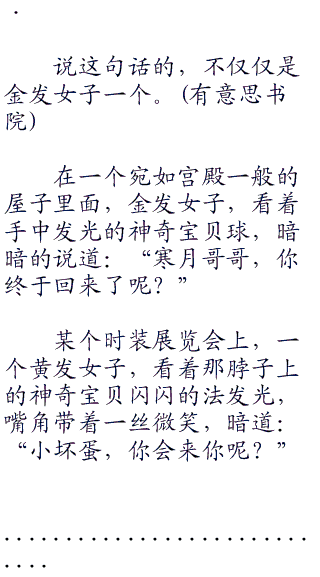 .
说这句话的，不仅仅是
金发女子一个。(有意思书
院)
在一个宛如宫殿一般的
屋子里面，金发女子，看着
手中发光的神奇宝贝球，暗
暗的说道：“寒月哥哥，你
终于回来了呢？”
某个时装展览会上，一
个黄发女子，看着那脖子上
的神奇宝贝闪闪的法发光，
嘴角带着一丝微笑，暗道：
“小坏蛋，你会来你呢？”
.........................
....